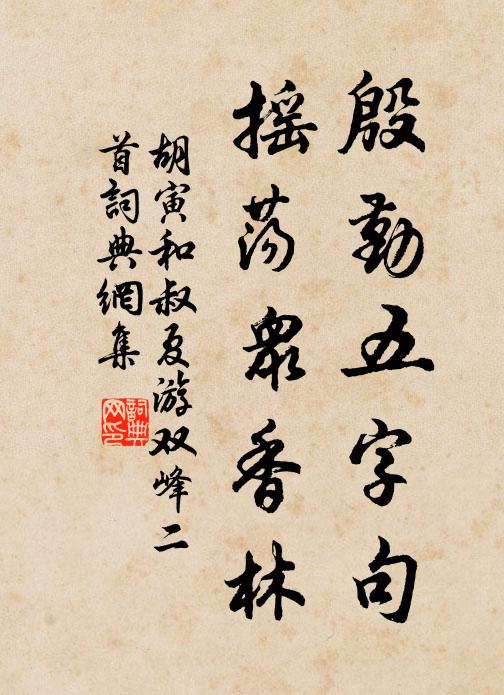 殷勤五字句
摇荡众香林
胡寅和叔夏游双峰二
首詞典網集
詞典网印